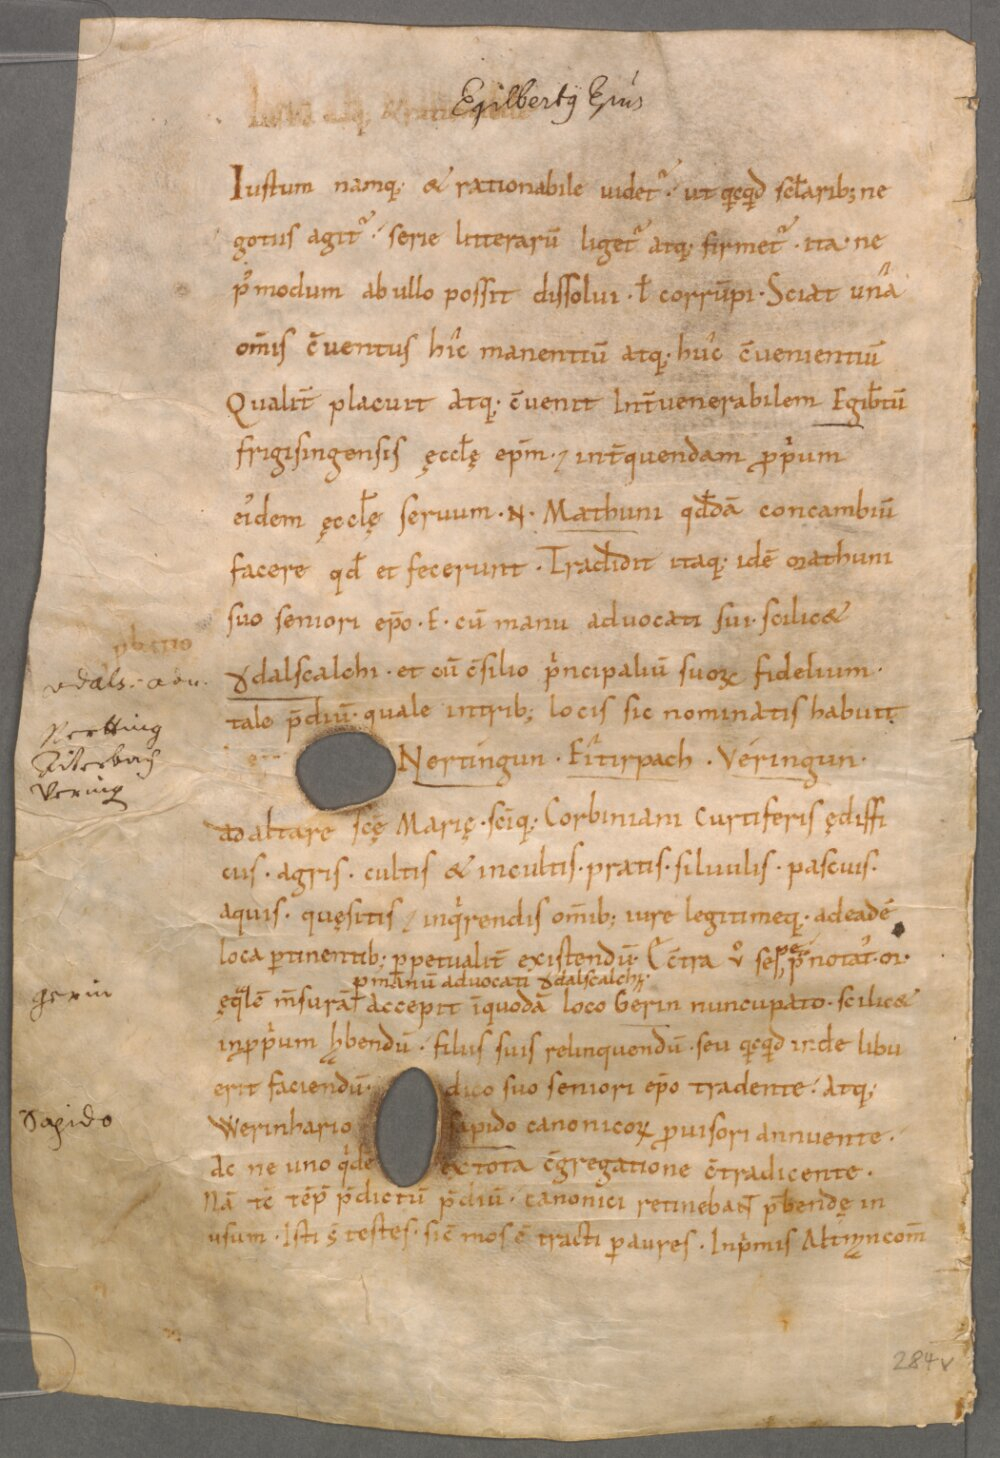 Egilbertq Epius
Iustum namq; & rationabile uidet᷑. ut qcqd sclarib; ne
gotiis agit᷑. serie litterarū liget᷑ atq; firmet᷑. ita. ne
p᷑modum ab ullo possit dissolui. ł corrūpi. Sciat
om̄is c̄uentus hic manentiū atq; huc c̄uenientiū
Qualit̄ placuit atq; c̄uenit Int̄ uenerabilem Egilb̄tū
frigisingensis ęccłę ep̄m. & int̄ quendam ꝓp̍um
eidem ęccłę seruum. N. Mathuni qđdā concambiū
facere qđ et fecerunt. Tradidit itaq; idē mathuni
suo seniori ep̄o. E. cū manu aduocati sui. scilic&
Ꝩdalscalchi. et cū c̄silio p̍ncipaliū suoꝝ fidelium.
tale p̄diū. quale intrib; locis sic nominatis habuit
Nertingun. Eitirpach. Veringun.
ad altare scę̄ Marię. sciq; Corbiniani Curtiferis ędiffi
cus. agris. cultis & incultis. pratis. siluulis. pascuis.
aquis. quęsitis & inq̍rendis om̄ib; iure legitimeq; adeadē
loca ꝑtinentib; ꝑpetualit̄ existendū. C̄tra
ꝑ manū aduocati Ꝩdalscalchi.
accepit īquodā loco Gerin nuncupato. scilic&
inꝓp̍um hbendū. filiis suis relinquendū. seu qcqd inde libu
erit faciendū. dico suo seniori ep̄o tradente. atq;
Werinhario sapido canonicoꝝ ꝓuisori annuente.
Ac ne uno q̍dē ex tota c̄gregatione c̄tradicente.
Nā tc̄ tēp̄ p̄dictū p̄diū. canonici retinebant p̄bendę in
usum. Isti s̄ testes. sic̄ mos ē tracti ꝑ aures. Inp̍mis Altm̄
vdals. adu.
Nertting
Aiterbach
Vering
gerin
Sapido
284v